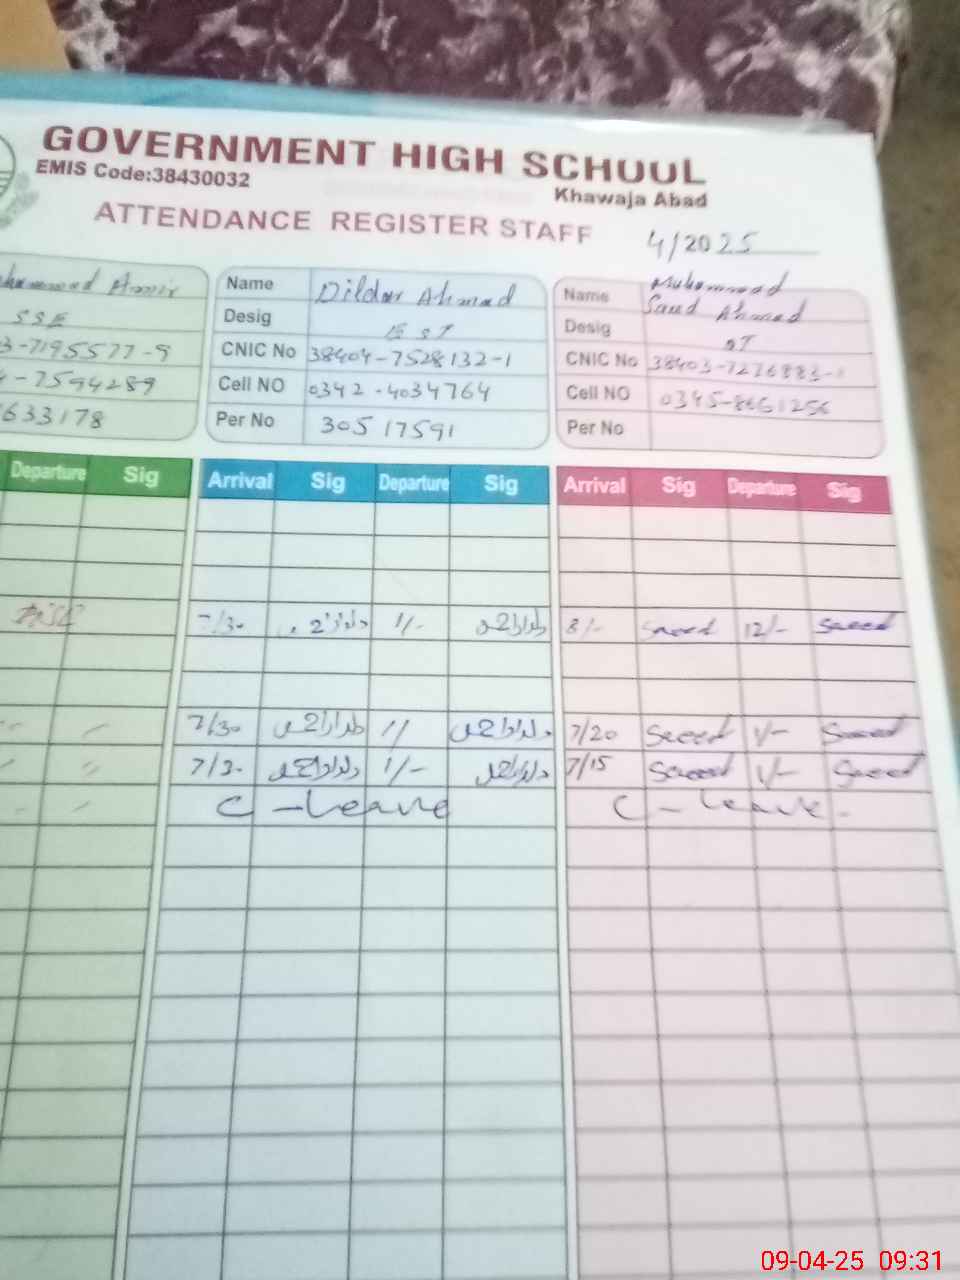 GOVERNMENT HIGH SCHOOL
EMIS Code:38430032
Khawaja Abad
ATTENDANCE REGISTER STAFF
4/2025
Amir
SSE
3-7195577-9
-7594289
633178
Name Dildar Ahmad
Desig EST
CNIC No 38404-7528132-1
Cell NO 0342-4034764
Per No 30517591
Name Muhammad
Saed Ahmad
Desig
CNIC No 38403-7276883-1
Cell NO
Per No
Departure Sig
Arrival Sig Departure Sig
Arrival Sig Departure Sig
7/30 1/- 8/- Saeed 12/- Saeed
7/30 دلدار احمد 1/ دلدار احمد 7/20 Saeed 1/- Saeed
7/30 دلدار احمد 1/- دلدار احمد 7/15 Saeed 1/- Saeed
C-Leave C-Leave.
09-04-25 09:31